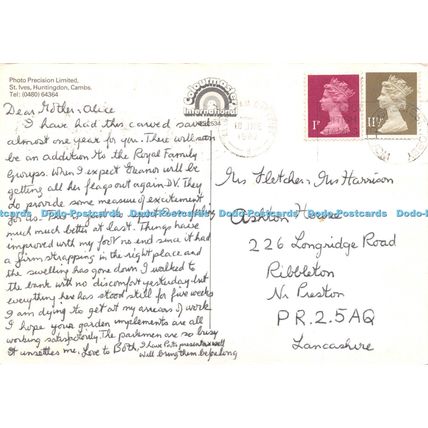 Photo Precision Limited,
St. Ives, Huntingdon, Cambs.
Tel: (0480) 64364
Colourmaster
International
Dear Mother & Alice
I have had this carved saved
almost one year for you. There will soon
be an addition to the Royal Family
Groups. When I expect Eleanor will be
getting all her flags out again D.V. They
do provide some measure of excitement
for us.
much much better at last. Things have
improved with my foot no end since it had
a firm strapping in the right place and
the swelling has gone down I walked to
the bank with no discomfort yesterday but
everything here has stood still for five weeks
I am dying to get at my arrears of work.
I hope your garden implements are all
working satisfactorily. The parkmen are so busy
it unsettles me. Love to Both. I have Pat's present as well
will bring them before long
1P
11½P
Mrs Fletcher & Mrs Harrison
Ashton House
226 Longridge Road
Ribbleton
Nr Preston
PR.2.5AQ
Lancashire
Dodo-Postcards Dodo-Postcards Dodo-Postcards Dodo-Postcards